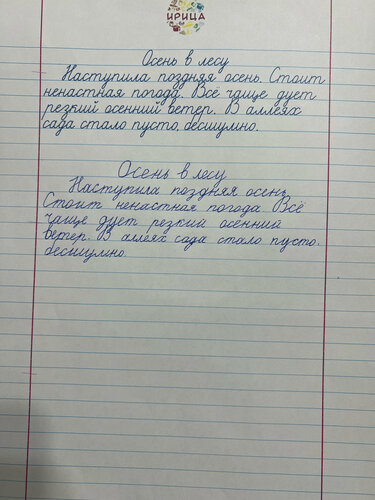 ИРИЦА
Осень в лесу
Наступила поздняя осень. Стоит
ненастная погода. Всё чаще дует
резкий осенний ветер. В аллеях
сада стало пусто, бесшумно.
Осень в лесу
Наступила поздняя осень
Стоит ненастная погода Всё
чаще дует резкий осенний
ветер. В аллеях сада стало пусто.
бесшумно.